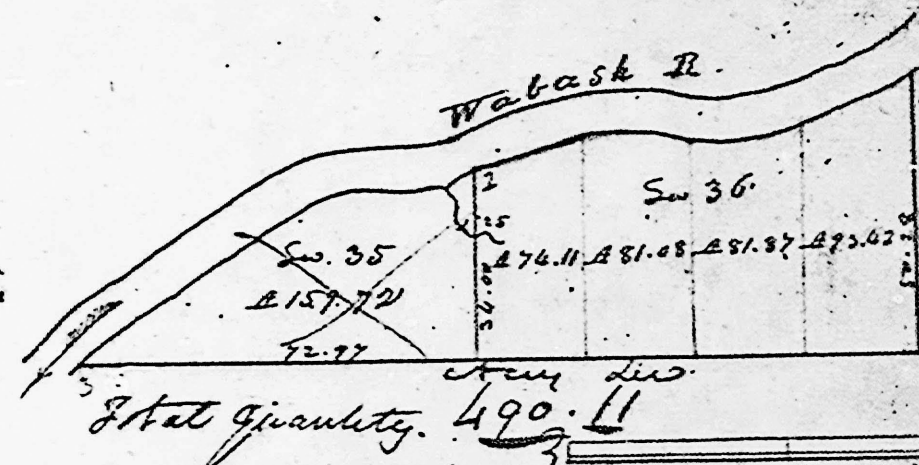 Wabash R.
Sec 36
Sec. 35
A 74.11 A 81.08 A 81.87 A 93.42
A 159.72
34.00
25
72.97
3
Total Quantity. 490.11